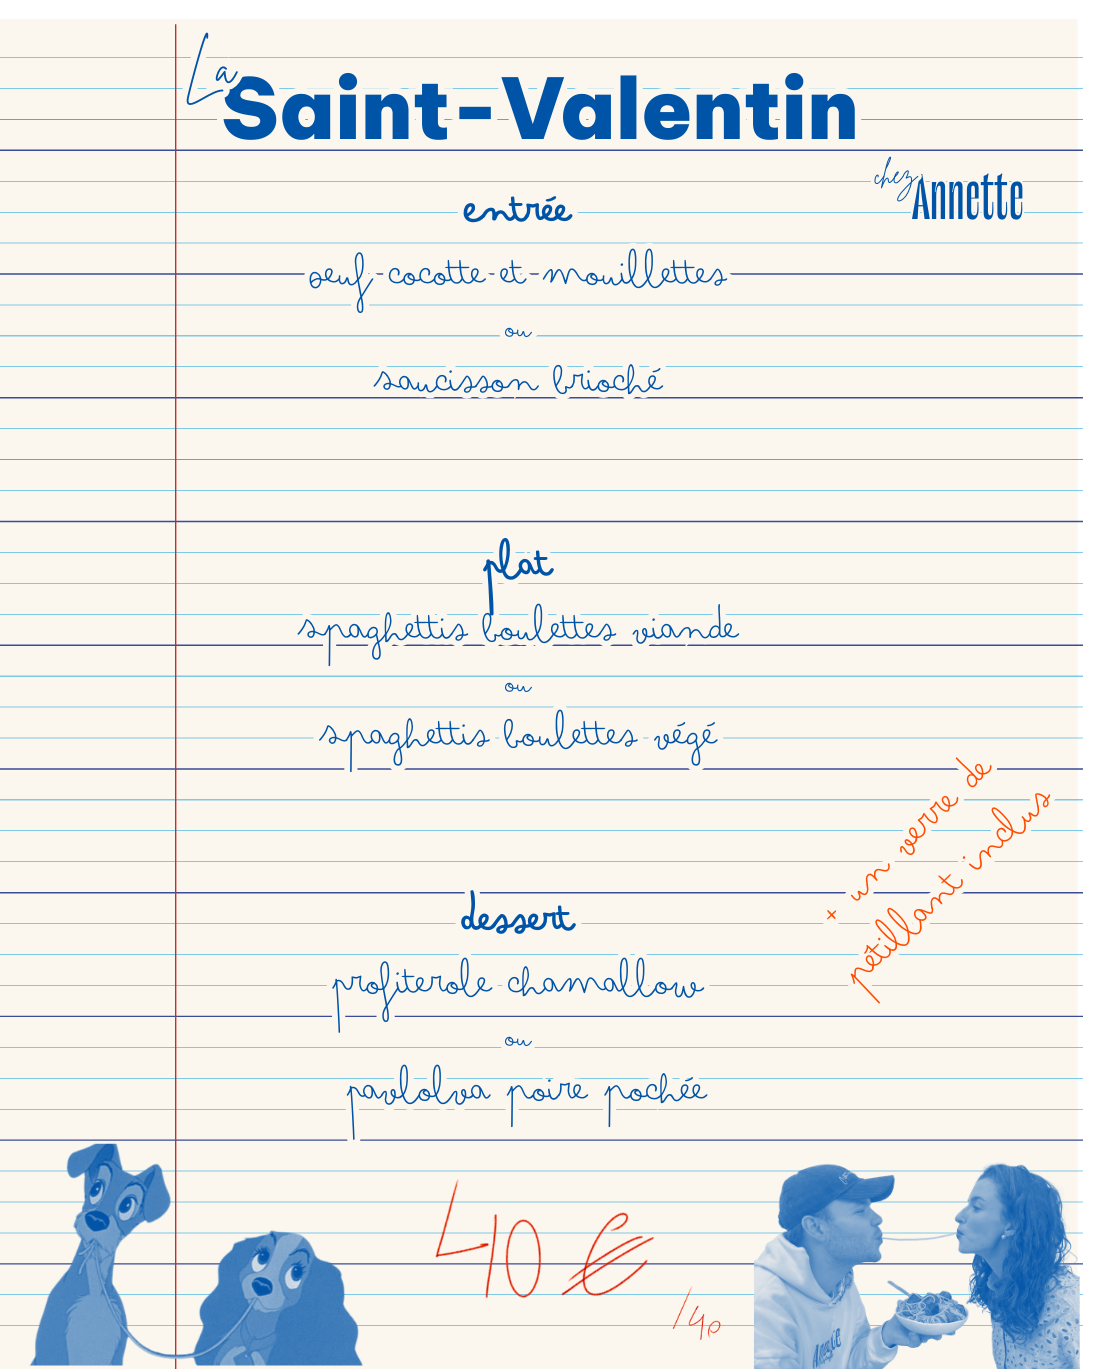 La
Saint-Valentin
chez Annette
entrée
oeuf cocotte et mouillettes
ou
saucisson brioché
plat
spaghettis boulettes viande
ou
spaghettis boulettes végé
+ un verre de
pétillant inclus
dessert
profiterole chamallow
ou
pavlolva poire pochée
40 €
/40
Annette